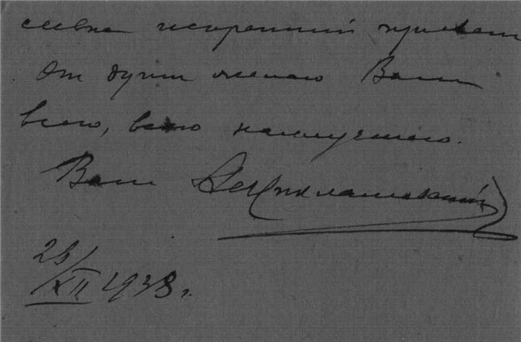 искренний привет
От души желаю Вам
всего, всего наилучшего.
Ваш
28/XII 1938 г.